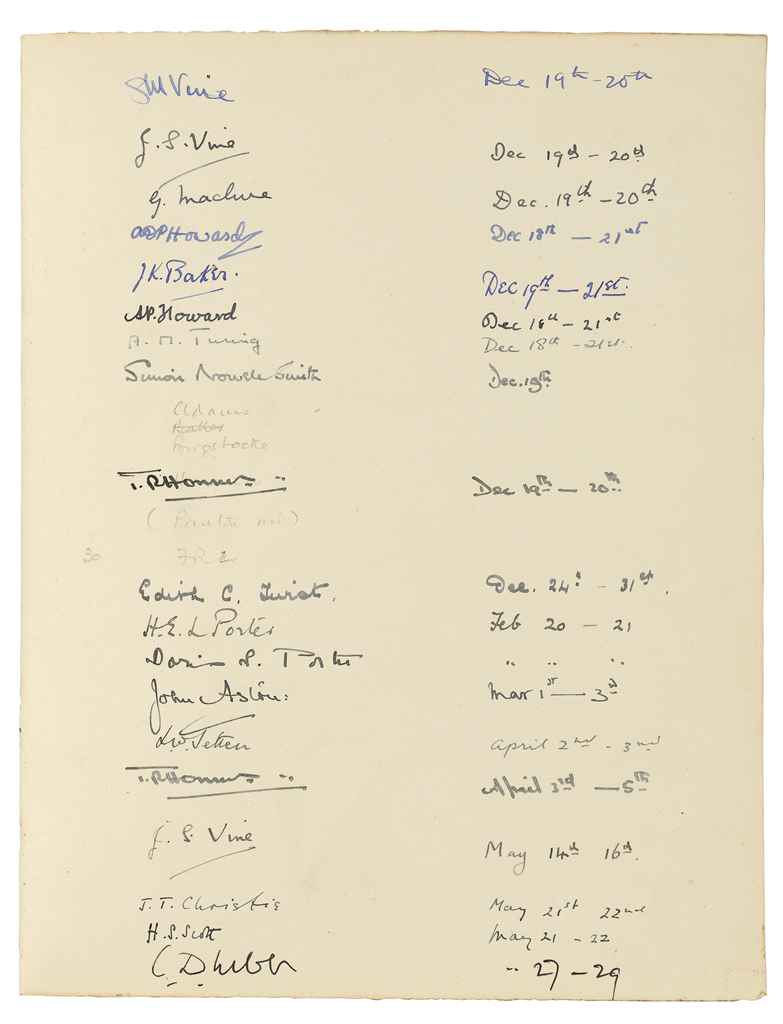 GM Vine Dec 19th - 20th
G. S. Vine Dec 19th - 20th
G. Dec. 19th - 20th
ADP Howard Dec 18th - 21st
J.K. Baker. Dec 19th - 21st.
A.P. Howard Dec 18th - 21st
A. M. Turing Dec 18th - 21st.
Simon Nowell Smith Dec. 19th
Adams
T. R Honner Dec 19th - 20th
30
Edith C. Dec. 24th - 31st.
H.E.L Porter Feb 20 - 21
S. Porter " " "
John Aston: Mar 1st - 3rd
April 2nd - 3rd
T. R Honner April 3rd - 5th
G. S. Vine May 14th 16th.
J. T. Christie May 21st 22nd
H. S. Scott May 21 - 22
C. D " 27 - 29